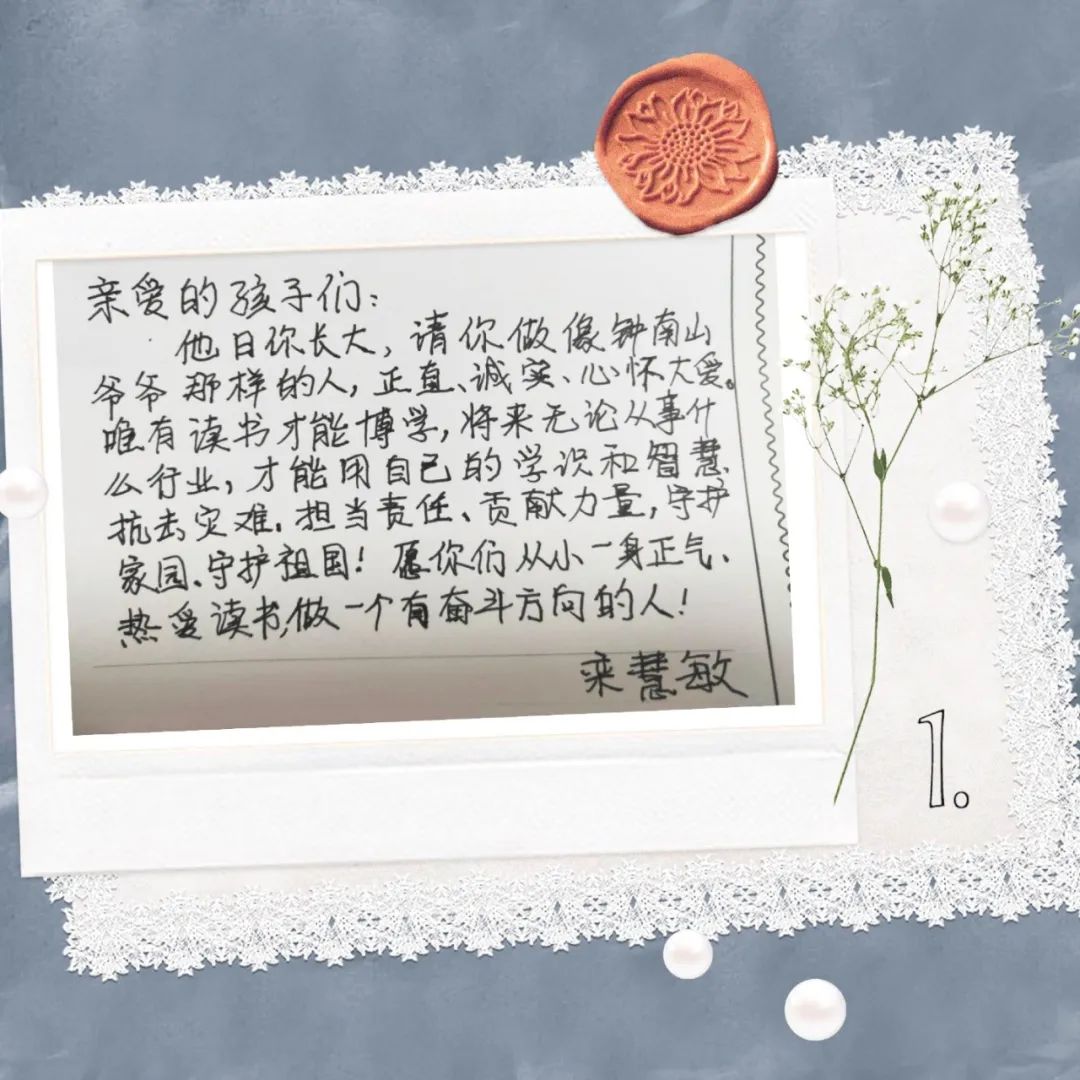 亲爱的孩子们:
他日你长大,请你做像钟南山
爷爷那样的人,正直、诚实、心怀大爱。
唯有读书才能博学,将来无论从事什
么行业,才能用自己的学识和智慧
抗击灾难、担当责任、贡献力量,守护
家园、守护祖国!愿你们从小一身正气、
热爱读书,做一个有奋斗方向的人!
栾慧敏
1.